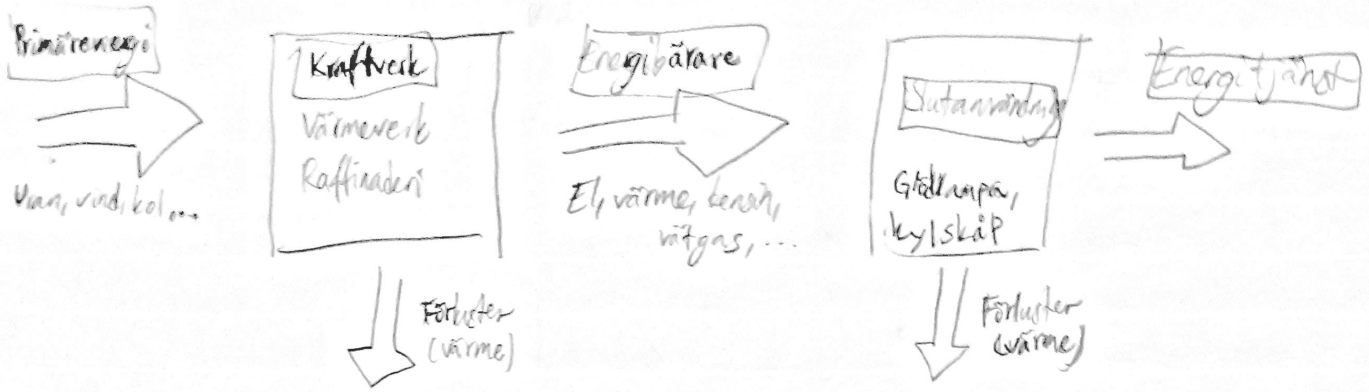 Primärenergi
Uran, vind, kol...
Kraftverk
Värmeverk
Raffinaderi
Förluster
(värme)
Energibärare
El, värme, bensin,
vätgas, ...
Slutanvändning
Glödlampa,
kylskåp
Förluster
(värme)
Energitjänst